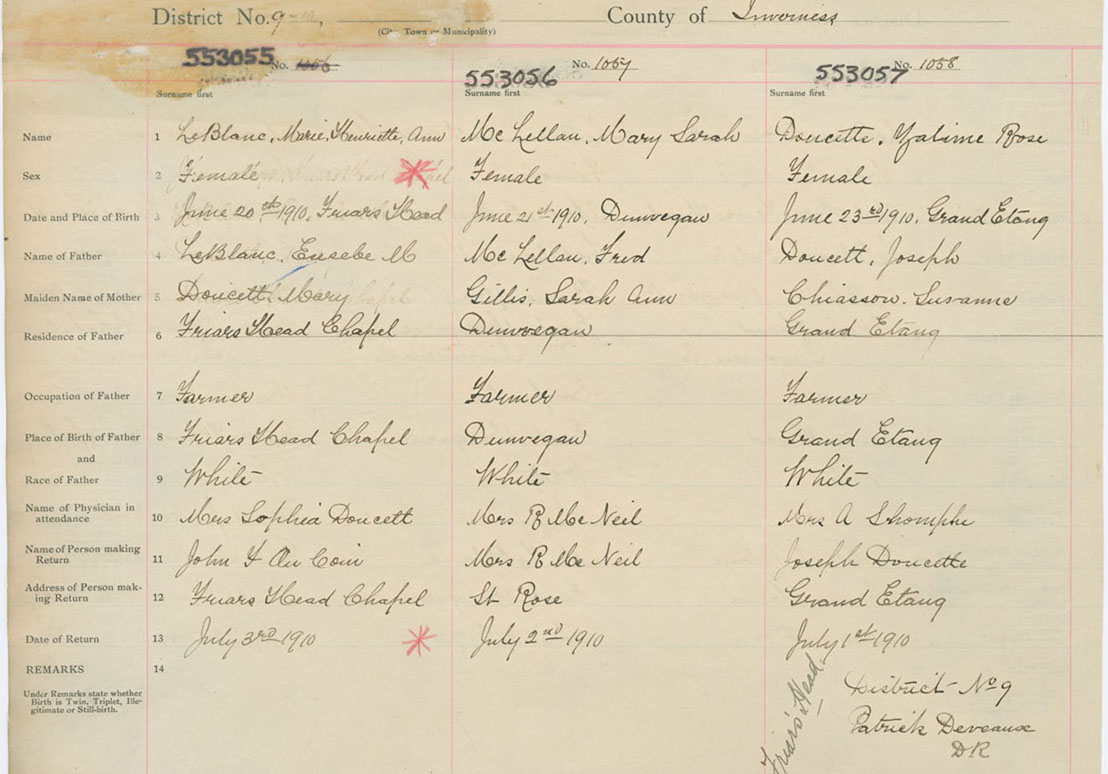 District No. 9 County of Inverness
(City, Town or Municipality)
553055 No. 1056 553056 No. 1057 553057 No. 1058
Surname first Surname first Surname first
Name 1 LeBlanc, Marie, Henriette, Ann Mc Lellan, Mary Sarah Doucette, Zalime Rose
Sex 2 Female Female Female
Date and Place of Birth 3 June 20th 1910, Friars Head June 21st 1910, Dunvegan June 23rd 1910, Grand Etang
Name of Father 4 LeBlanc, Eusebe M Mc Lellan, Fred Doucett, Joseph
Maiden Name of Mother 5 Doucett, Mary Gillis, Sarah Ann Chiasson, Susanne
Residence of Father 6 Friars Head Chapel Dunvegan Grand Etang
Occupation of Father 7 Farmer Farmer Farmer
Place of Birth of Father 8 Friars Head Chapel Dunvegan Grand Etang
and
Race of Father 9 White White White
Name of Physician in
attendance 10 Mrs Sophia Doucett Mrs R Mc Neil Mrs A Shomphe
Name of Person making
Return 11 John F Au Coin Mrs R Mc Neil Joseph Doucette
Address of Person mak-
ing Return 12 Friars Head Chapel St Rose Grand Etang
Date of Return 13 July 3rd 1910 July 2nd 1910 July 1st 1910
REMARKS 14
Under Remarks state whether
Birth is Twin, Triplet, Ille-
gitimate or Still-birth.
Friars Head
District No 9
Patrick Deveaux
DR